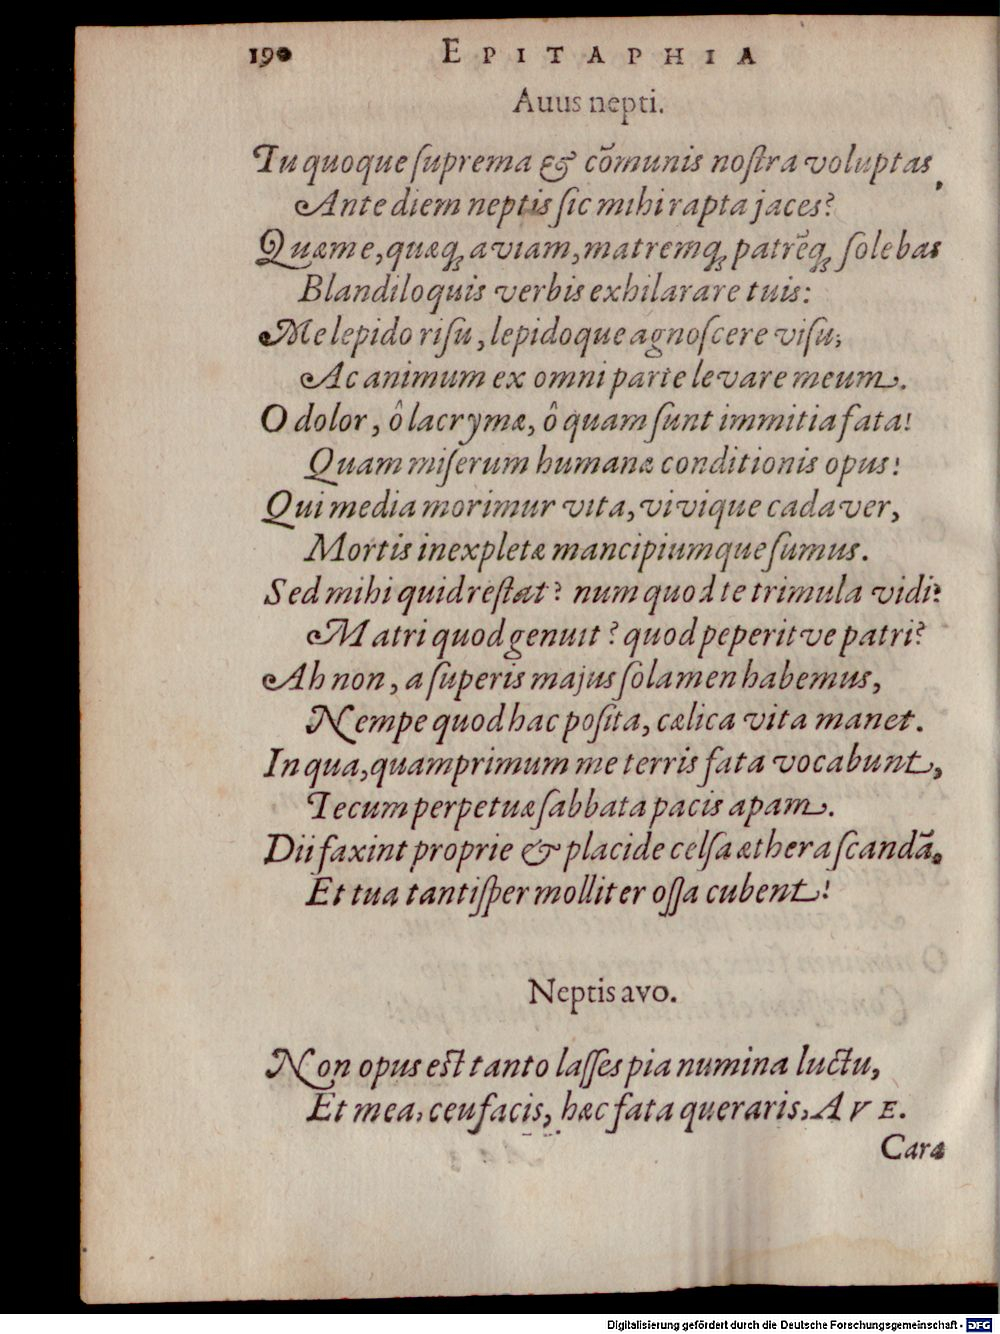 190 EPITAPHIA
Avus nepti.
Tu quoque ſuprema & cōmunis noſtra voluptas,
Ante diem neptis ſic mihi rapta jaces?
Quæ me, quæq; aviam, matremq; patrēq; ſolebas
Blandiloquis verbis exhilarare tuis:
Me lepido riſu, lepidoque agnoſcere viſu;
Ac animum ex omni parte levare meum.
O dolor, ô lacrymæ, ô quam ſunt immitia fata!
Quam miſerum humanæ conditionis opus!
Qui media morimur vita, vivique cadaver,
Mortis inexpletæ mancipiumque ſumus.
Sed mihi quid reſtat? num quod te trimula vidi?
Matri quod genuit? quod peperitve patri?
Ah non, a ſuperis majus ſolamen habemus,
Nempe quod hac poſita, cælica vita manet.
In qua, quamprimum me terris fata vocabunt,
Tecum perpetuæ ſabbata pacis apam.
Dii faxint proprie & placide celſa æthera ſcandā,
Et tua tantiſper molliter oſſa cubent!
Neptis avo.
Non opus eſt tanto laſſes pia numina luctu,
Et mea, ceu facis, hæc fata queraris, AVE.
Cara
Digitalisierung gefördert durch die Deutsche Forschungsgemeinschaft - DFG